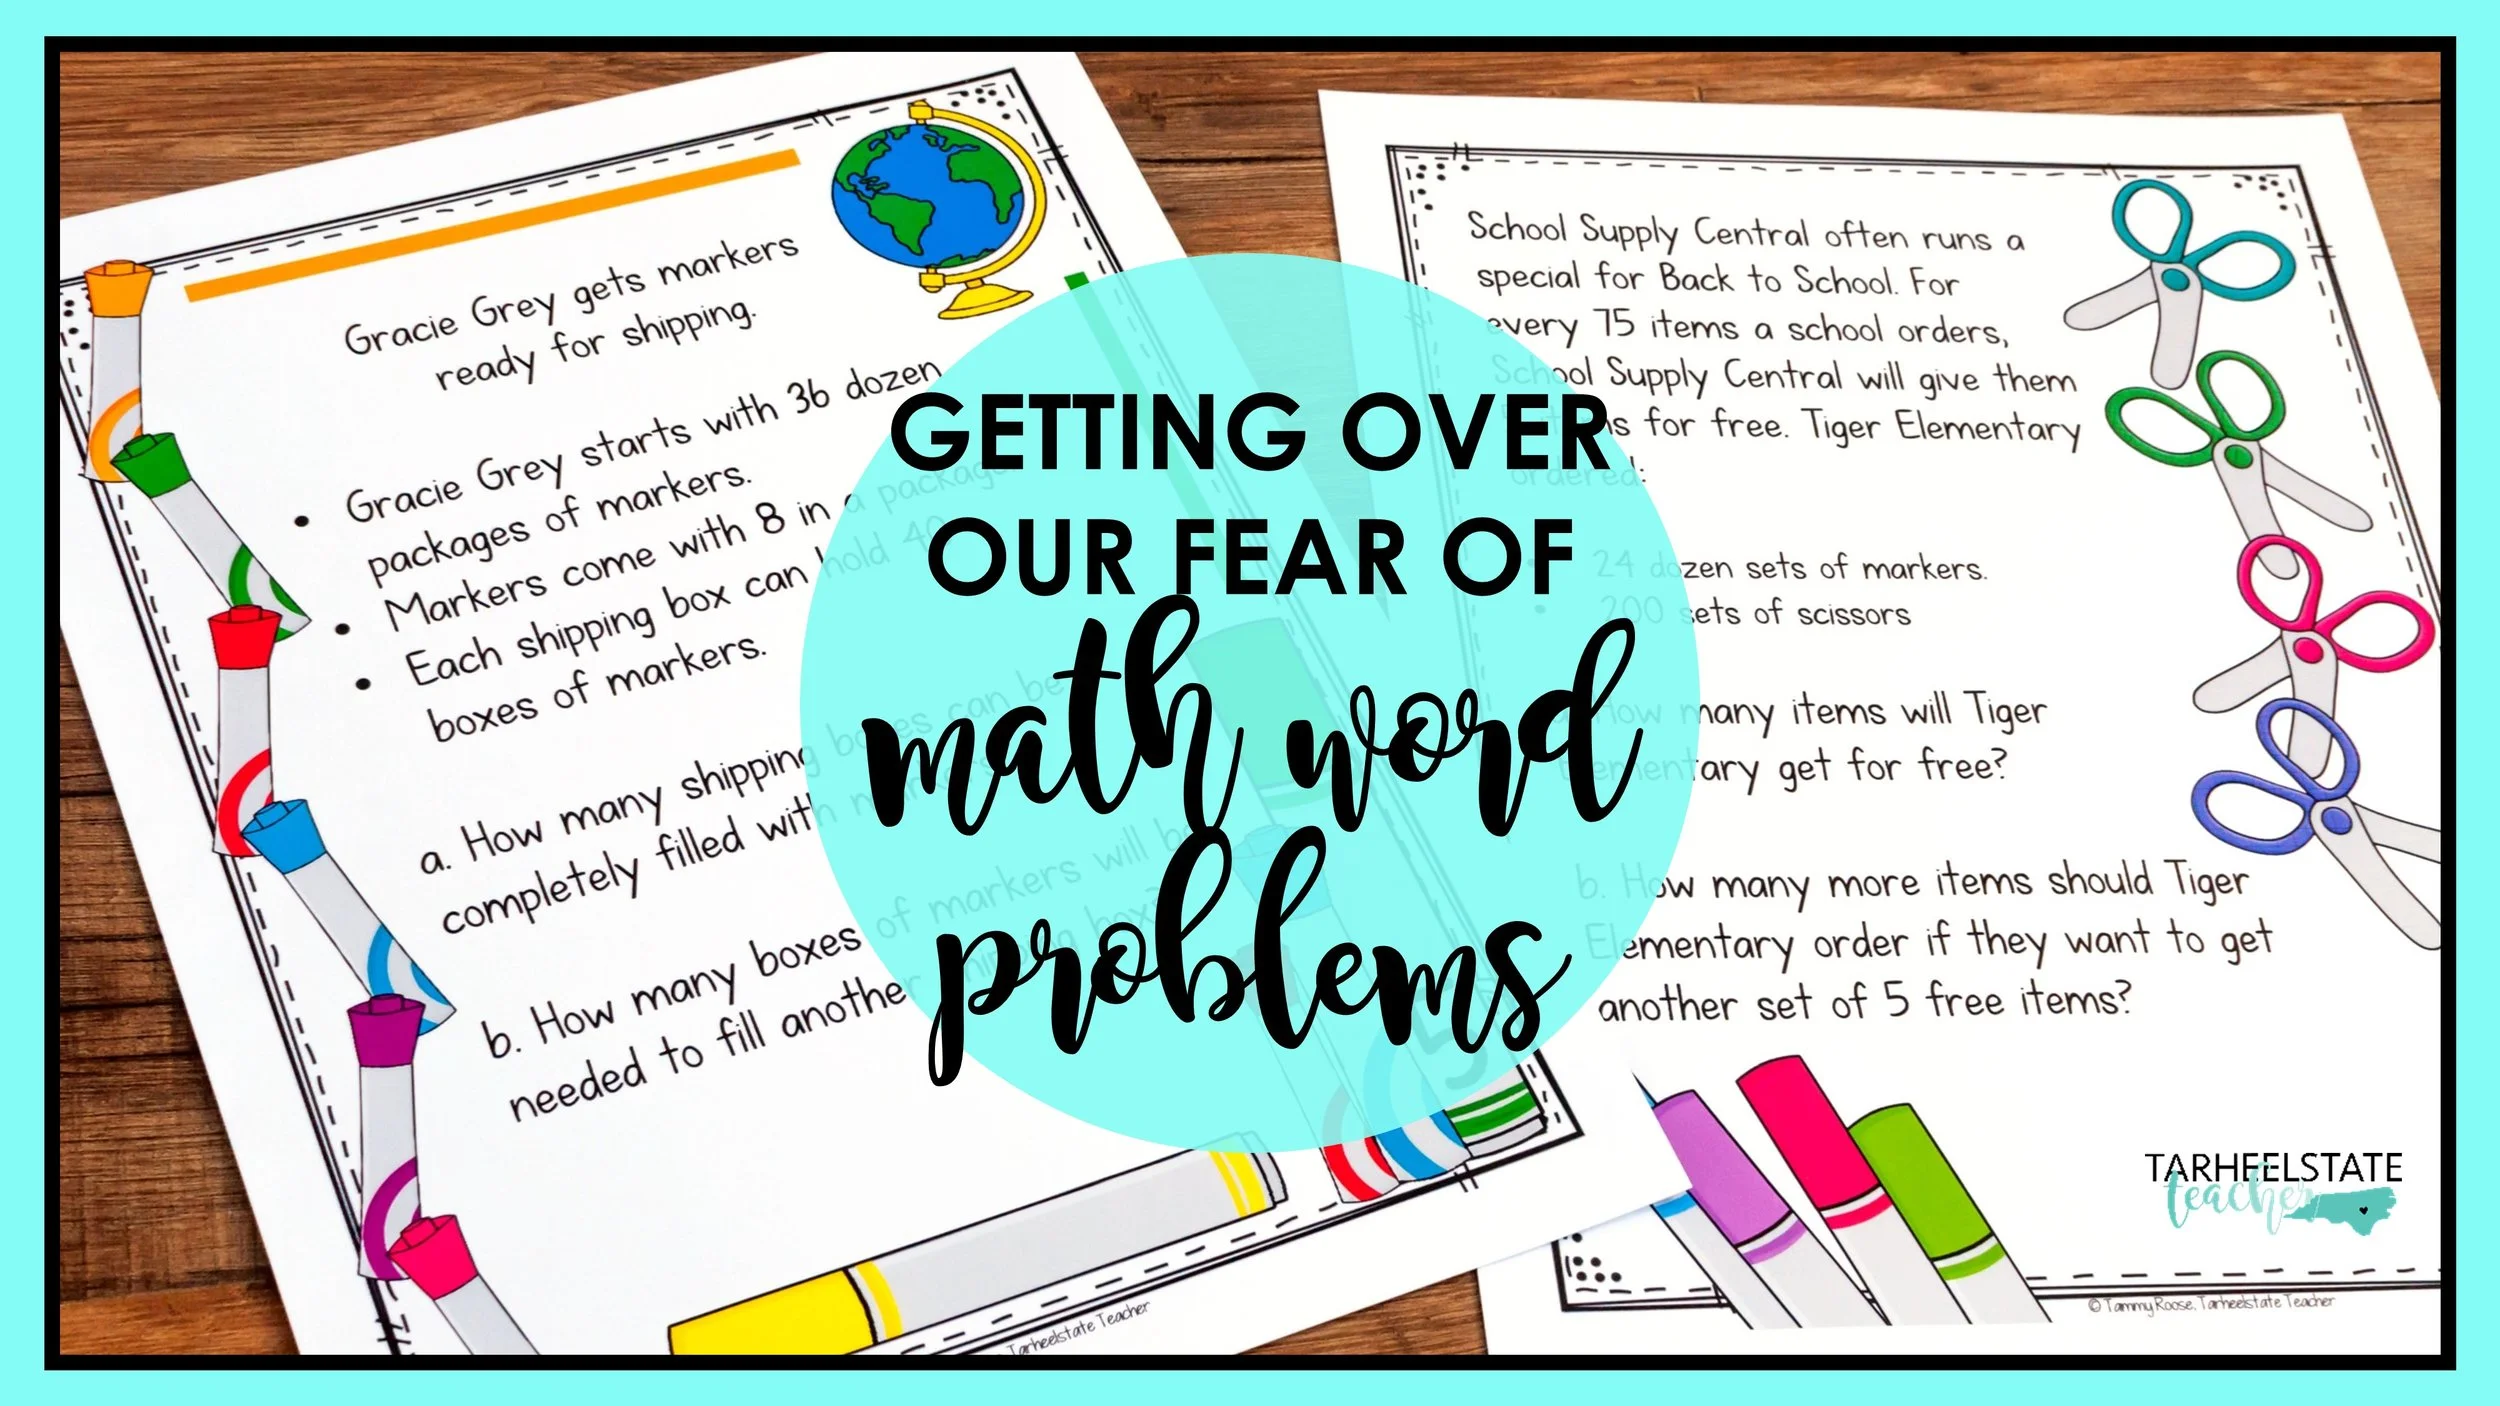 Gracie Grey gets markers
ready for shipping.
• Gracie Grey starts with 36 dozen
packages of markers.
• Markers come with 8 in a package
• Each shipping box can hold 40
boxes of markers.
a. How many shipping boxes can be
completely filled with markers
b. How many boxes of markers will be
needed to fill another shipping box?
Tarheelstate Teacher
GETTING OVER
OUR FEAR OF
math word
problems
School Supply Central often runs a
special for Back to School. For
every 75 items a school orders,
School Supply Central will give them
for free. Tiger Elementary
ordered:
24 dozen sets of markers.
200 sets of scissors
How many items will Tiger
Elementary get for free?
b. How many more items should Tiger
Elementary order if they want to get
another set of 5 free items?
TARHEELSTATE
teacher
© Tammy Roose, Tarheelstate Teacher